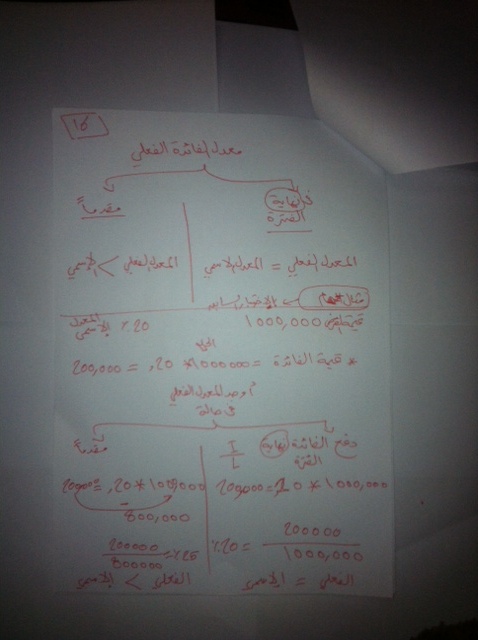 ١٥
معدل الفائدة الفعلي
في نهاية الفترة
مقدماً
المعدل الفعلي = المعدل الاسمي
المعدل الفعلي > الاسمي
مثال مهم ← الاختبار السابق
قيمة القرض 1000,000
20٪ المعدل الاسمي
* قيمة الفائدة = 1000000 * 20, = 200,000
أوجد المعدل الفعلي
في حالة
دفع الفائدة نهاية الفترة
I/L
مقدماً
1000,000 * 20, = 200,000
1000,000 * 20, = 200000
800,000
200000 / 1000,000 = 20٪
200000 / 800000 = 25٪
الفعلي = الاسمي
الفعلي > الاسمي